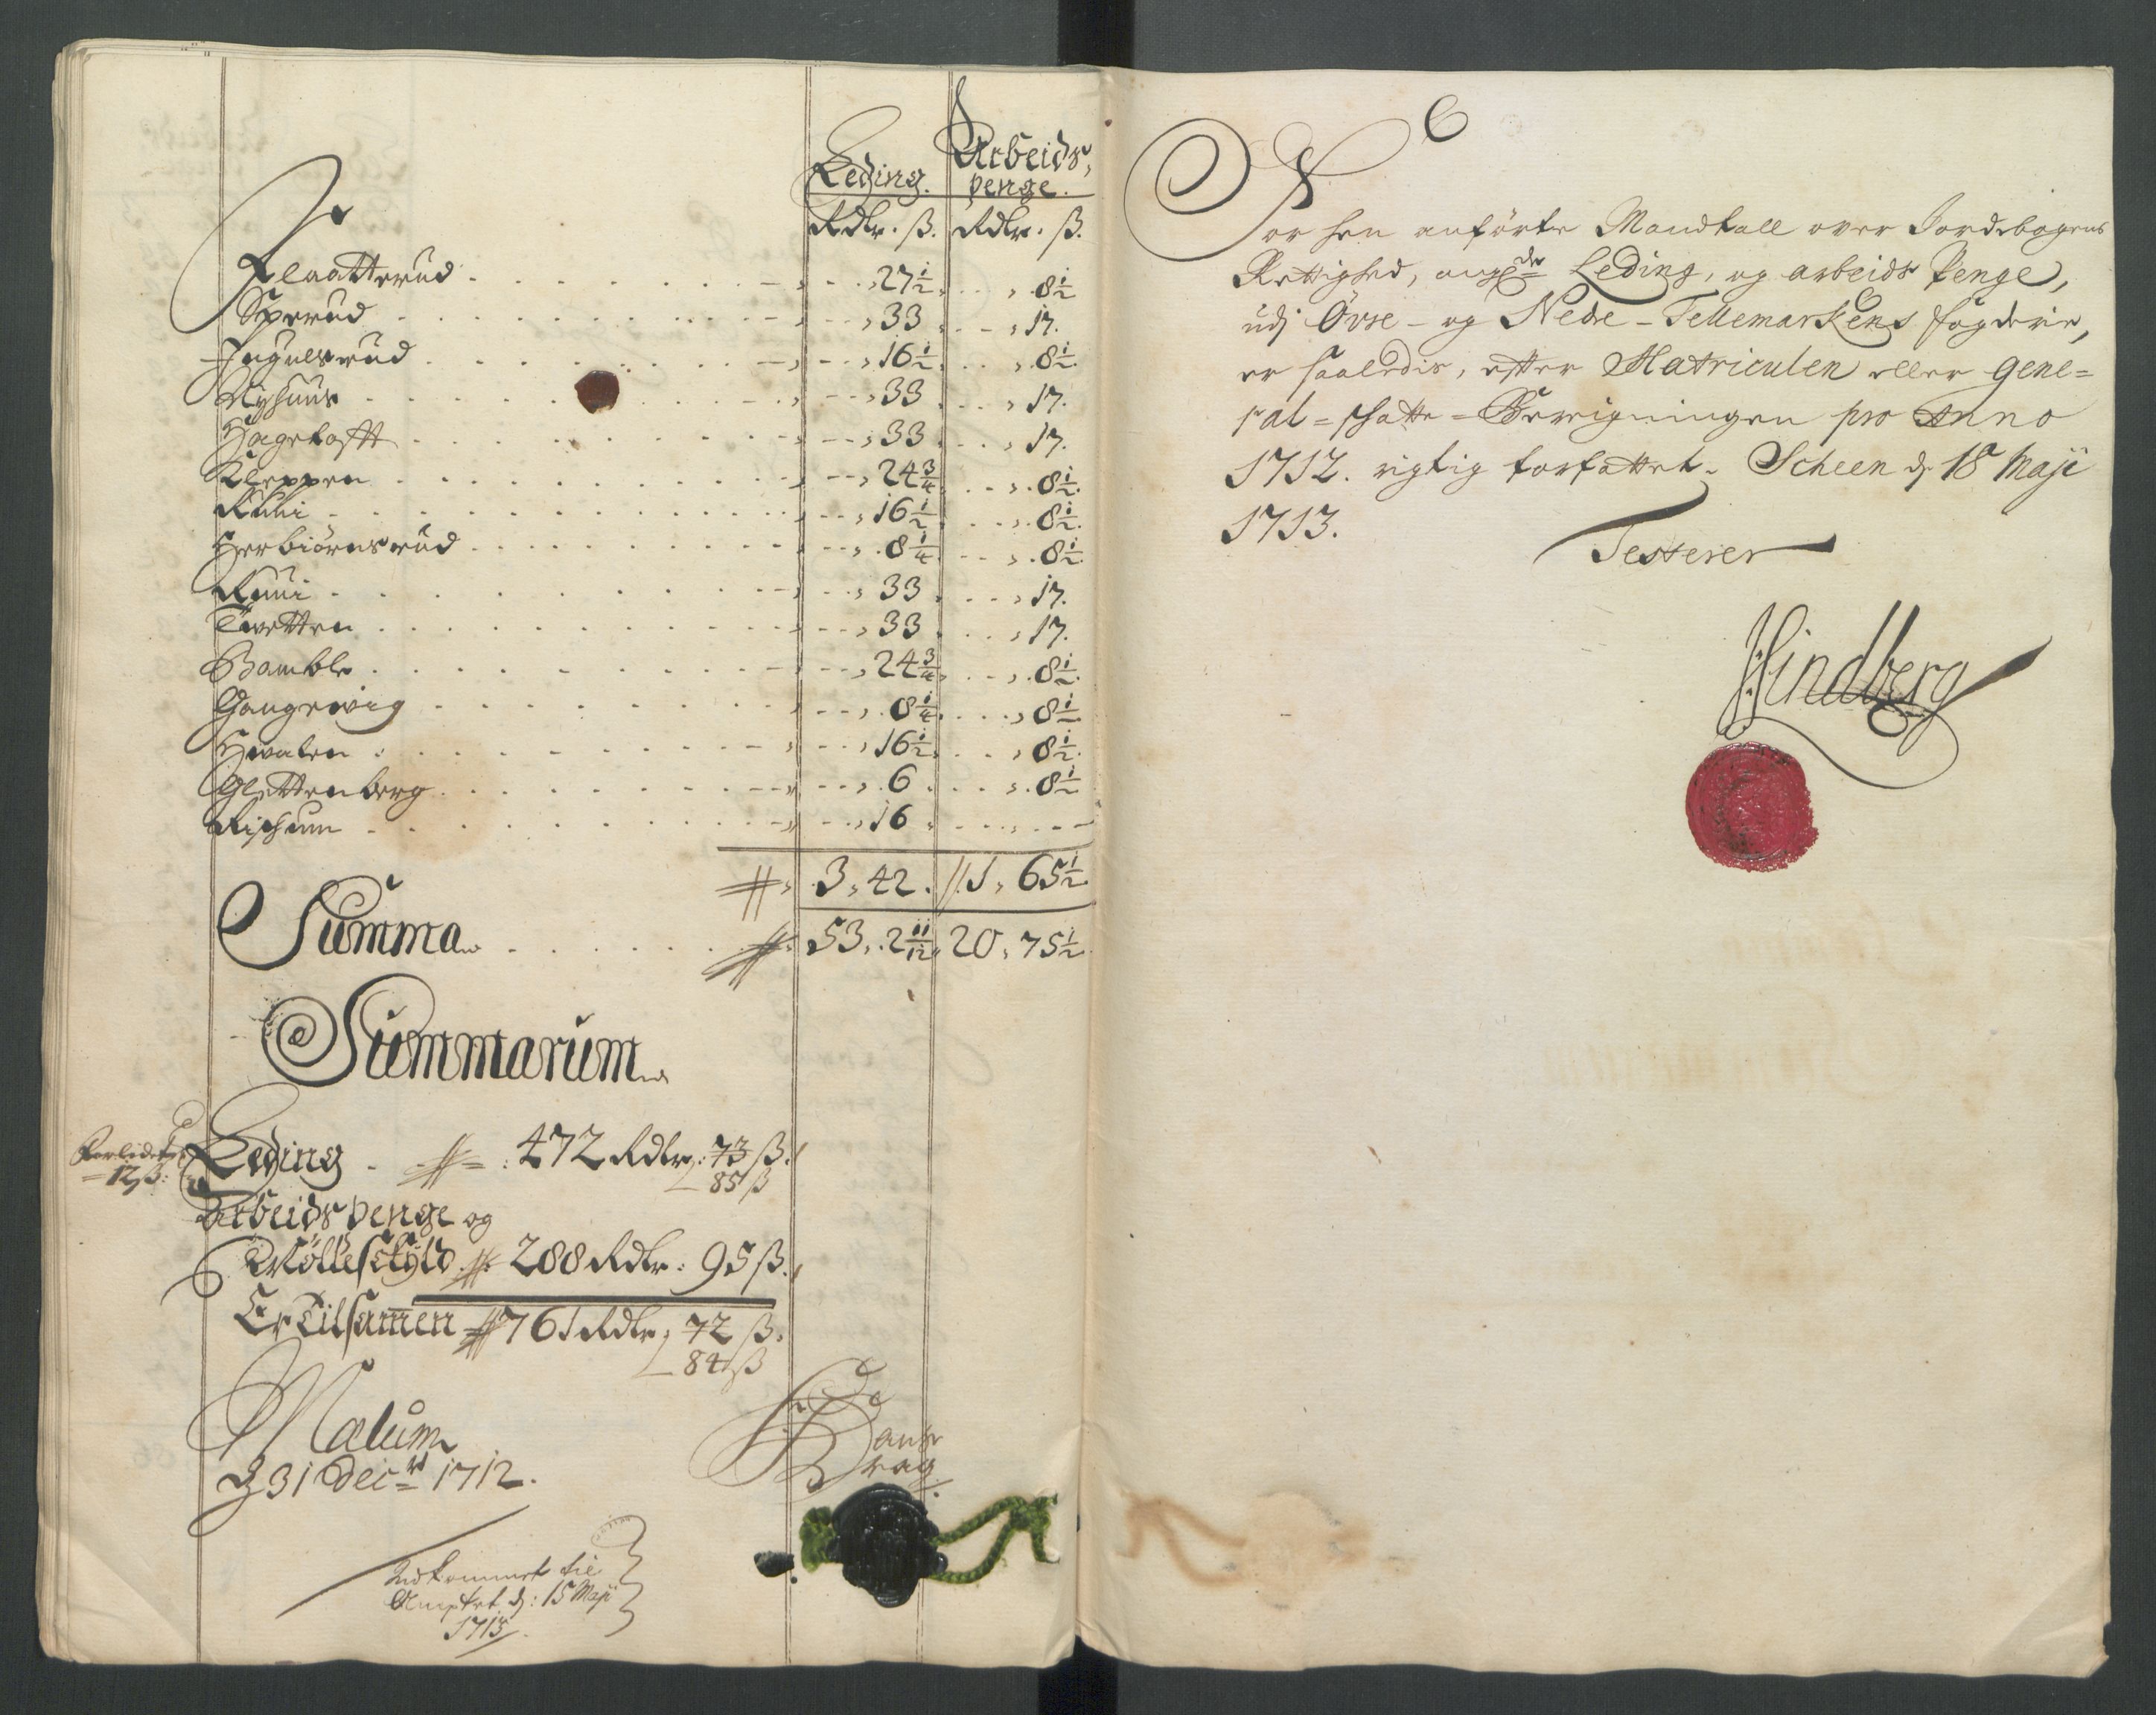 Leding. Arbeids penge.
Rdlr. ß. Rdlr. ß.
Flaatterud 27½ 8½
Sperud 33 17.
Ingulsrud 16½ 8½
Nyhuus 33 17.
Hagetofft 33 17.
Kleppen 24¾ 8½
Ruui 16½ 8½
Herbiörnsrud 8¼ 8½
Ruui 33 17.
Twetten 33 17.
Bamble 24¾ 8½
Gangewig 8¼ 8½
Hwalen 16½ 8½
Glettenberg 6 8½
Rishum 16
3, 42. 1, 65½
Summa 53, 2 11/12 20, 75½
Summarum
Leding 472 Rdlr: 73 ß.
12 ß: 85 ß
Arbeidspenge og
Mölleschyld 288 Rdlr: 95 ß.
Er Tilsamen 761 Rdlr: 72 ß.
84 ß
Malum
d 31 Decr 1712.
Indkommet til
Amptet d: 15 Maji
1713
6
For hen anförte Mandtall over Jordebogens
Rettighed, angde Leding, og arbeids Penge,
udj Övre- og Nedre-Tellemarkens fogderie,
er saaledis, efter Matriculen eller gene=
ral=schatte=Berigningen pro Anno
1712. rigtig forfattet. Scheen d 18 Maji
1713.
Testerer
Hindberg